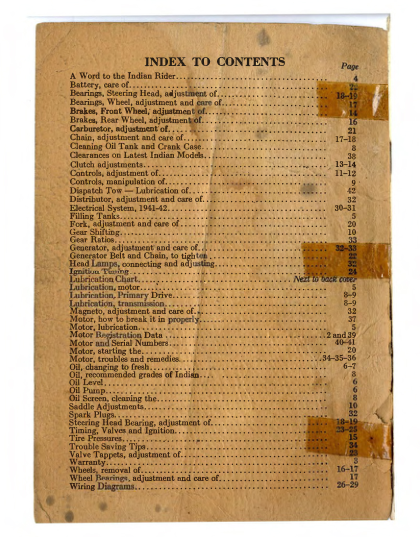 INDEX TO CONTENTS
Page
A Word to the Indian Rider 4
Battery, care of
Bearings, Steering Head, adjustment of 18-19
Bearings, Wheel, adjustment and care of 17
Brakes, Front Wheel, adjustment of 14
Brakes, Rear Wheel, adjustment of 16
Carburetor, adjustment of 21
Chain, adjustment and care of 17-18
Cleaning Oil Tank and Crank Case 8
Clearances on Latest Indian Models 38
Clutch adjustments 13-14
Controls, adjustment of 11-12
Controls, manipulation of 9
Dispatch Tow — Lubrication of 42
Distributor, adjustment and care of 32
Electrical System, 1941-42 30-31
Filling Tanks 5
Fork, adjustment and care of 20
Gear Shifting 10
Gear Ratios 33
Generator, adjustment and care of 32-33
Generator Belt and Chain, to tighten 22
Head Lamps, connecting and adjusting 32
Ignition Timing 24
Lubrication Chart Next to back cover
Lubrication, motor 5
Lubrication, Primary Drive 8-9
Lubrication, transmission 8-9
Magneto, adjustment and care of 32
Motor, how to break it in properly 37
Motor, lubrication 5
Motor Registration Data 2 and 39
Motor and Serial Numbers 40-41
Motor, starting the 20
Motor, troubles and remedies 34-35-36
Oil, changing to fresh 6-7
Oil, recommended grades of Indian 8
Oil Level 6
Oil Pump 6
Oil Screen, cleaning the 8
Saddle Adjustments 10
Spark Plugs 32
Steering Head Bearing, adjustment of 18-19
Timing, Valves and Ignition
Tire Pressures 15
Trouble Saving Tips 34
Valve Tappets, adjustment of 23
Warranty 3
Wheels, removal of 16-17
Wheel Bearings, adjustment and care of 17
Wiring Diagrams 26-29